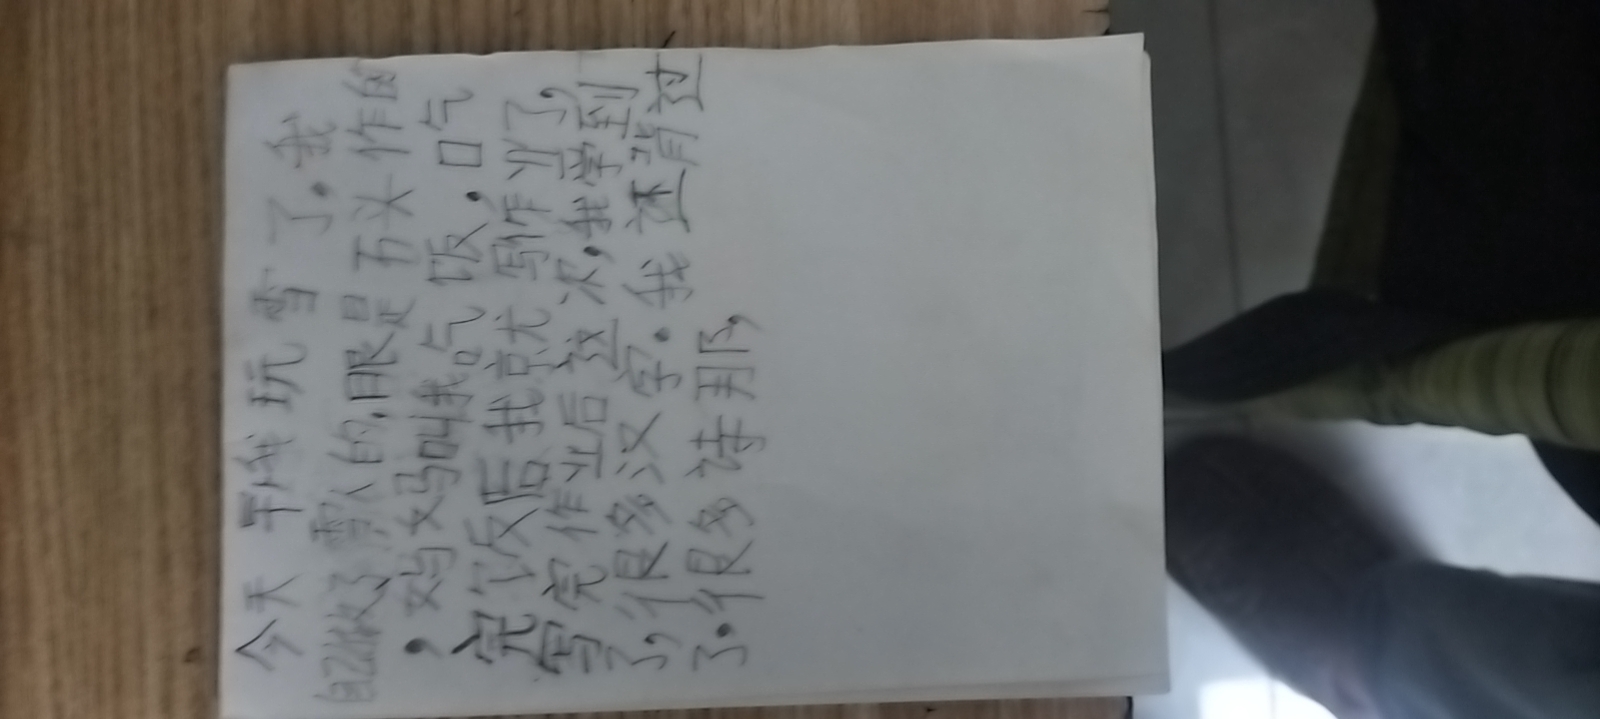 今天 我 玩 雪 了. 我
自己做了 雪人的,眼是 石头 作的
, 妈妈叫我吃 饭, 口气
完饭后我就 写作业了,
写完作业后 这次,我学到
了,很多汉字. 我 还背过
了.很多 诗 那,